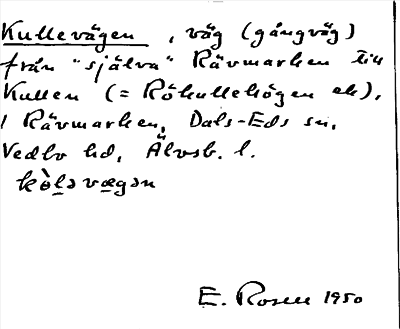 Kullevägen, väg (gångväg)
från "själva" Rävmarken till
Kullen (= Rökullehögen ek),
i Rävmarken, Dals-Eds sn,
Vedbo hd, Älvsb. l.
E. Rosen 1950